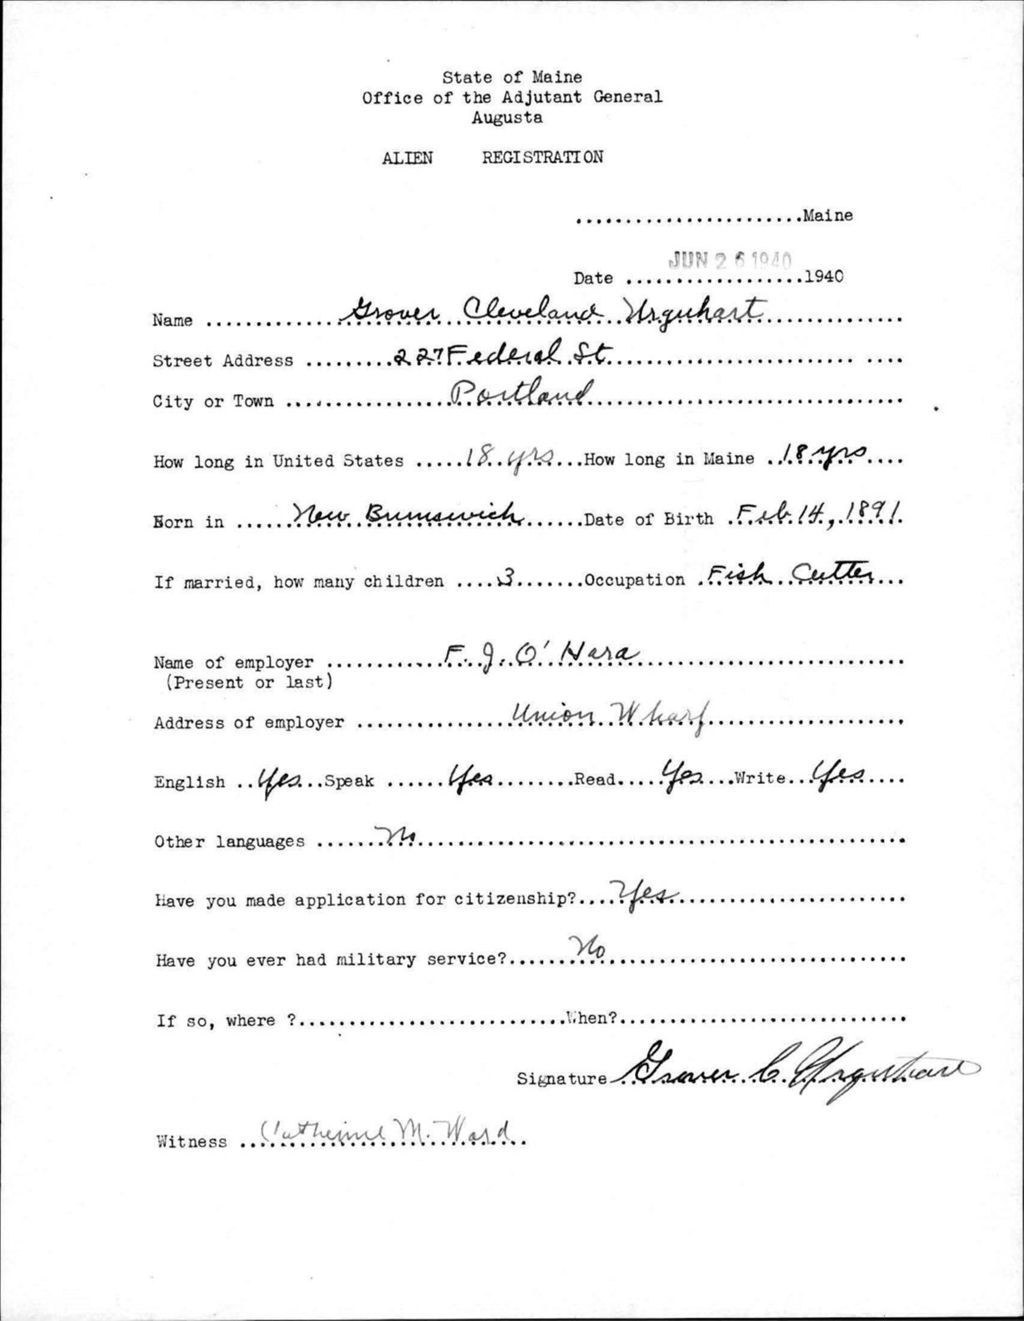 State of Maine
Office of the Adjutant General
Augusta
ALIEN REGISTRATION
.......................Maine
JUN 26 1940
Date ..................1940
Name ..............Grover Cleveland Urquhart..............
Street Address .........227 Federal St..............................
City or Town .................Portland...............................
How long in United States .....18 yrs...How long in Maine ..18 yrs....
Born in ......New Brunswick......Date of Birth .Feb. 14, 1891.
If married, how many children ....3.......Occupation .Fish Cutter...
Name of employer ............F. J. O'Hara...........................
(Present or last)
Address of employer ................Union Wharf....................
English ..Yes...Speak ......Yes.........Read....Yes...Write..Yes....
Other languages .......No.................................................
Have you made application for citizenship?....Yes........................
Have you ever had military service?......No..............................
If so, where ?...........................When?............................
Signature Grover C. Urquhart
Witness ..Catherine M. Ward..